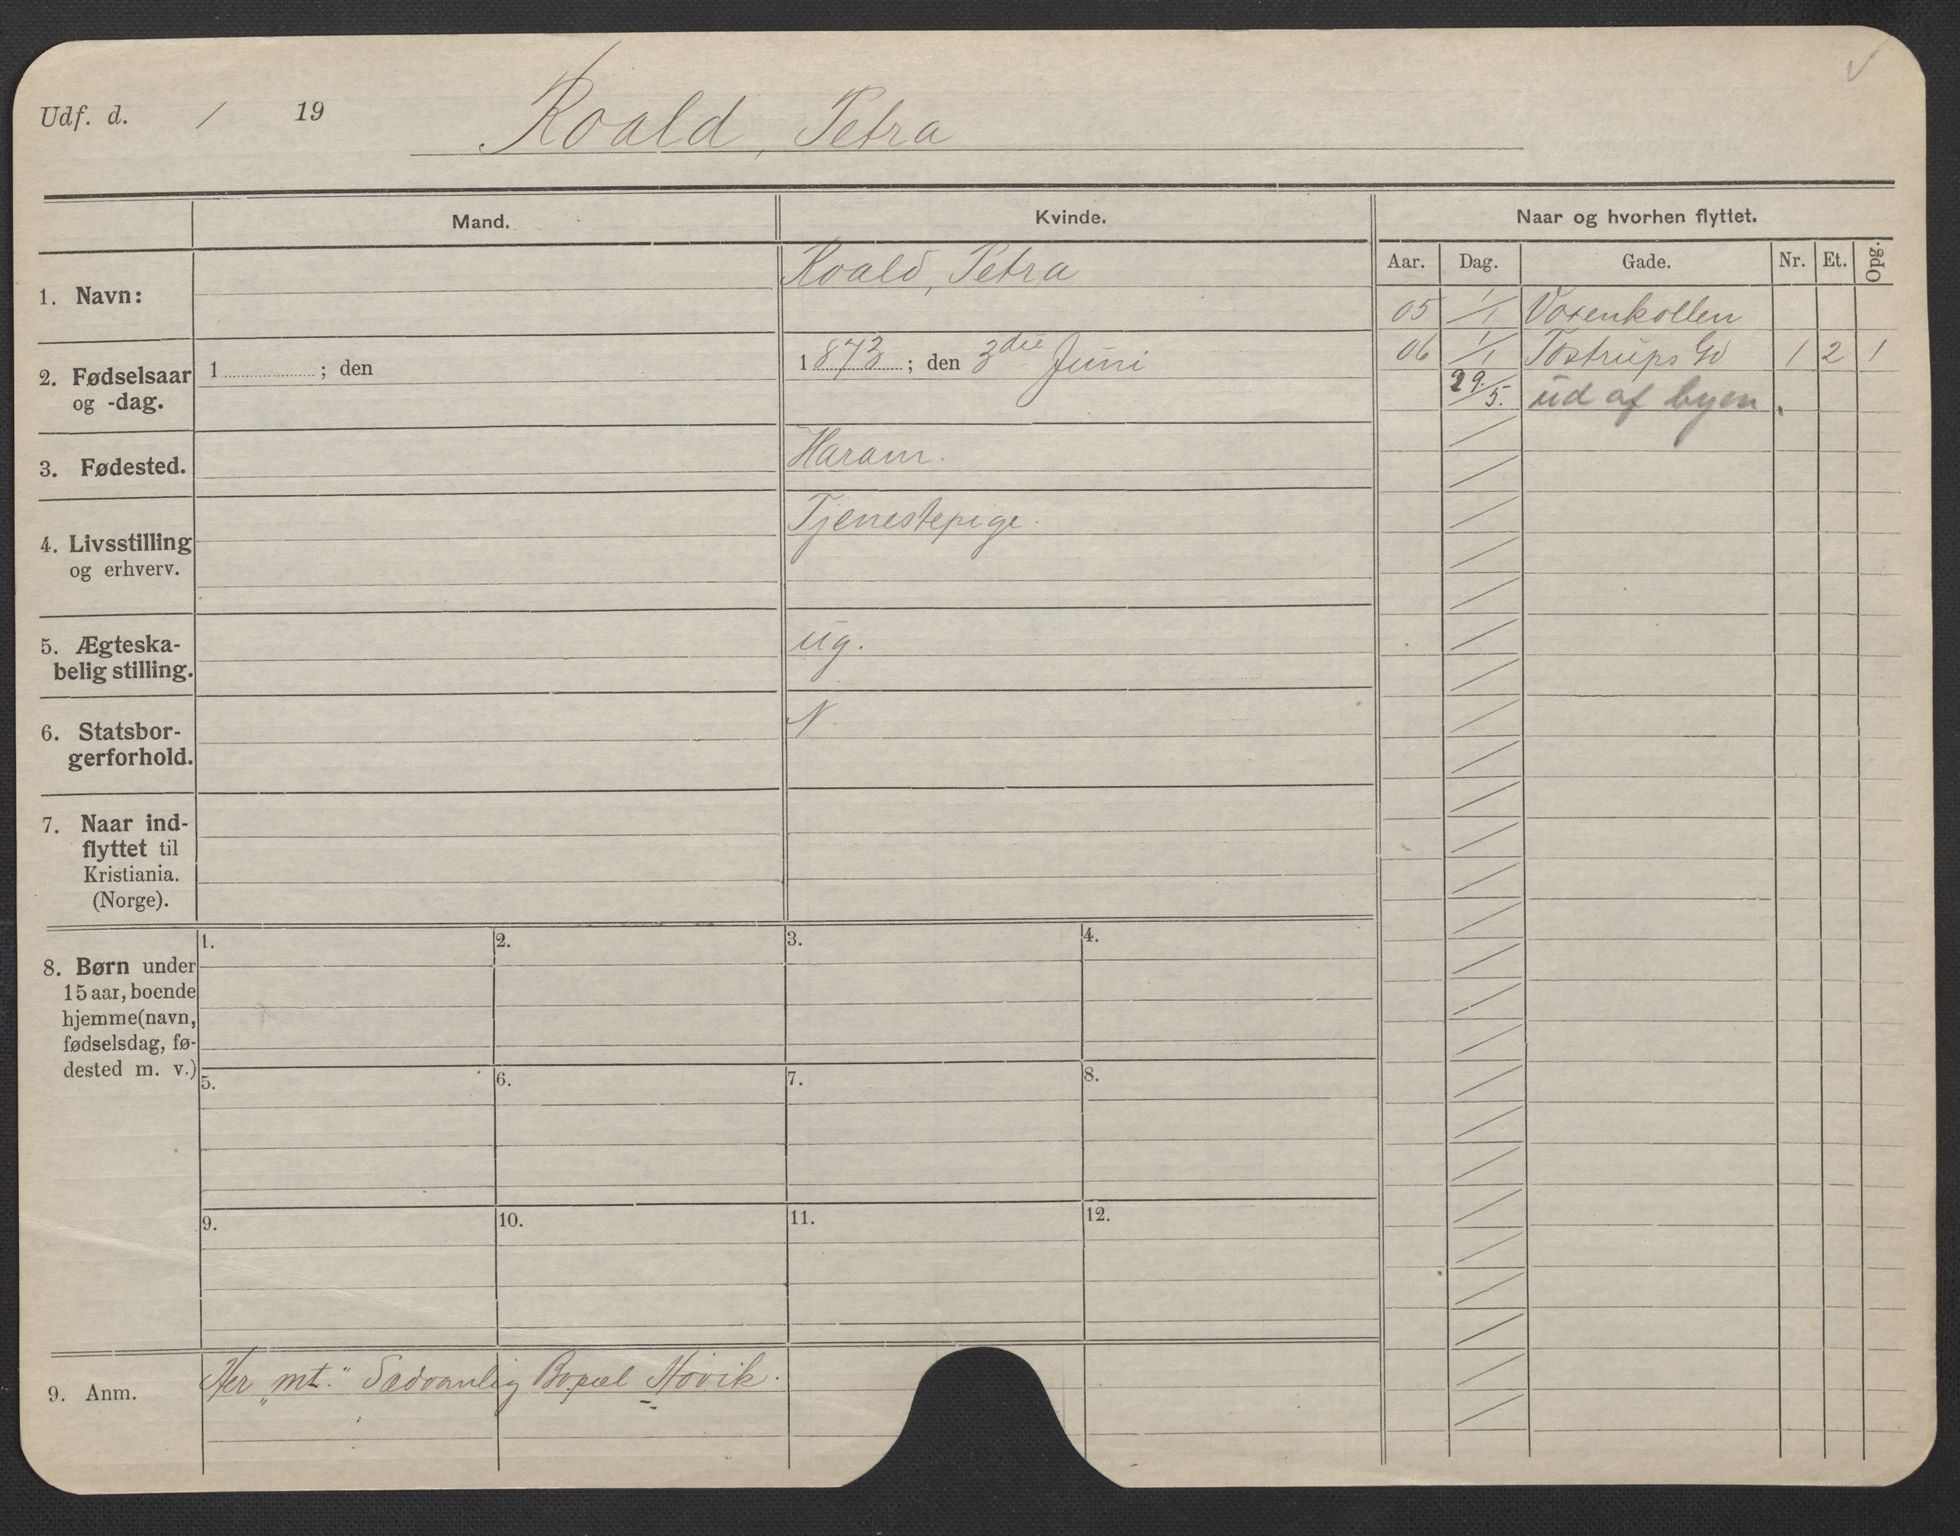 Udf. d. / 19
Roald, Petra
Mand.
Kvinde.
Naar og hvorhen flyttet.
Aar. Dag. Gade. Nr. Et. Opg.
1. Navn:
Roald, Petra
05 1/1 Voxenkollen
06 1/1 Tostrups Gd 1 2 1
29/5. ud af byen.
2. Fødselsaar
og -dag.
1 ; den
1873 ; den 3die Juni
3. Fødested.
Haram.
4. Livsstilling
og erhverv.
Tjenestepige.
5. Ægteska-
belig stilling.
ug.
6. Statsbor-
gerforhold.
N
7. Naar ind-
flyttet til
Kristiania.
(Norge).
8. Børn under
15 aar, boende
hjemme (navn,
fødselsdag, fø-
dested m. v.)
1. 2. 3. 4.
5. 6. 7. 8.
9. 10. 11. 12.
9. Anm.
Her „mt." Sædvanlig Bopæl Høvik.